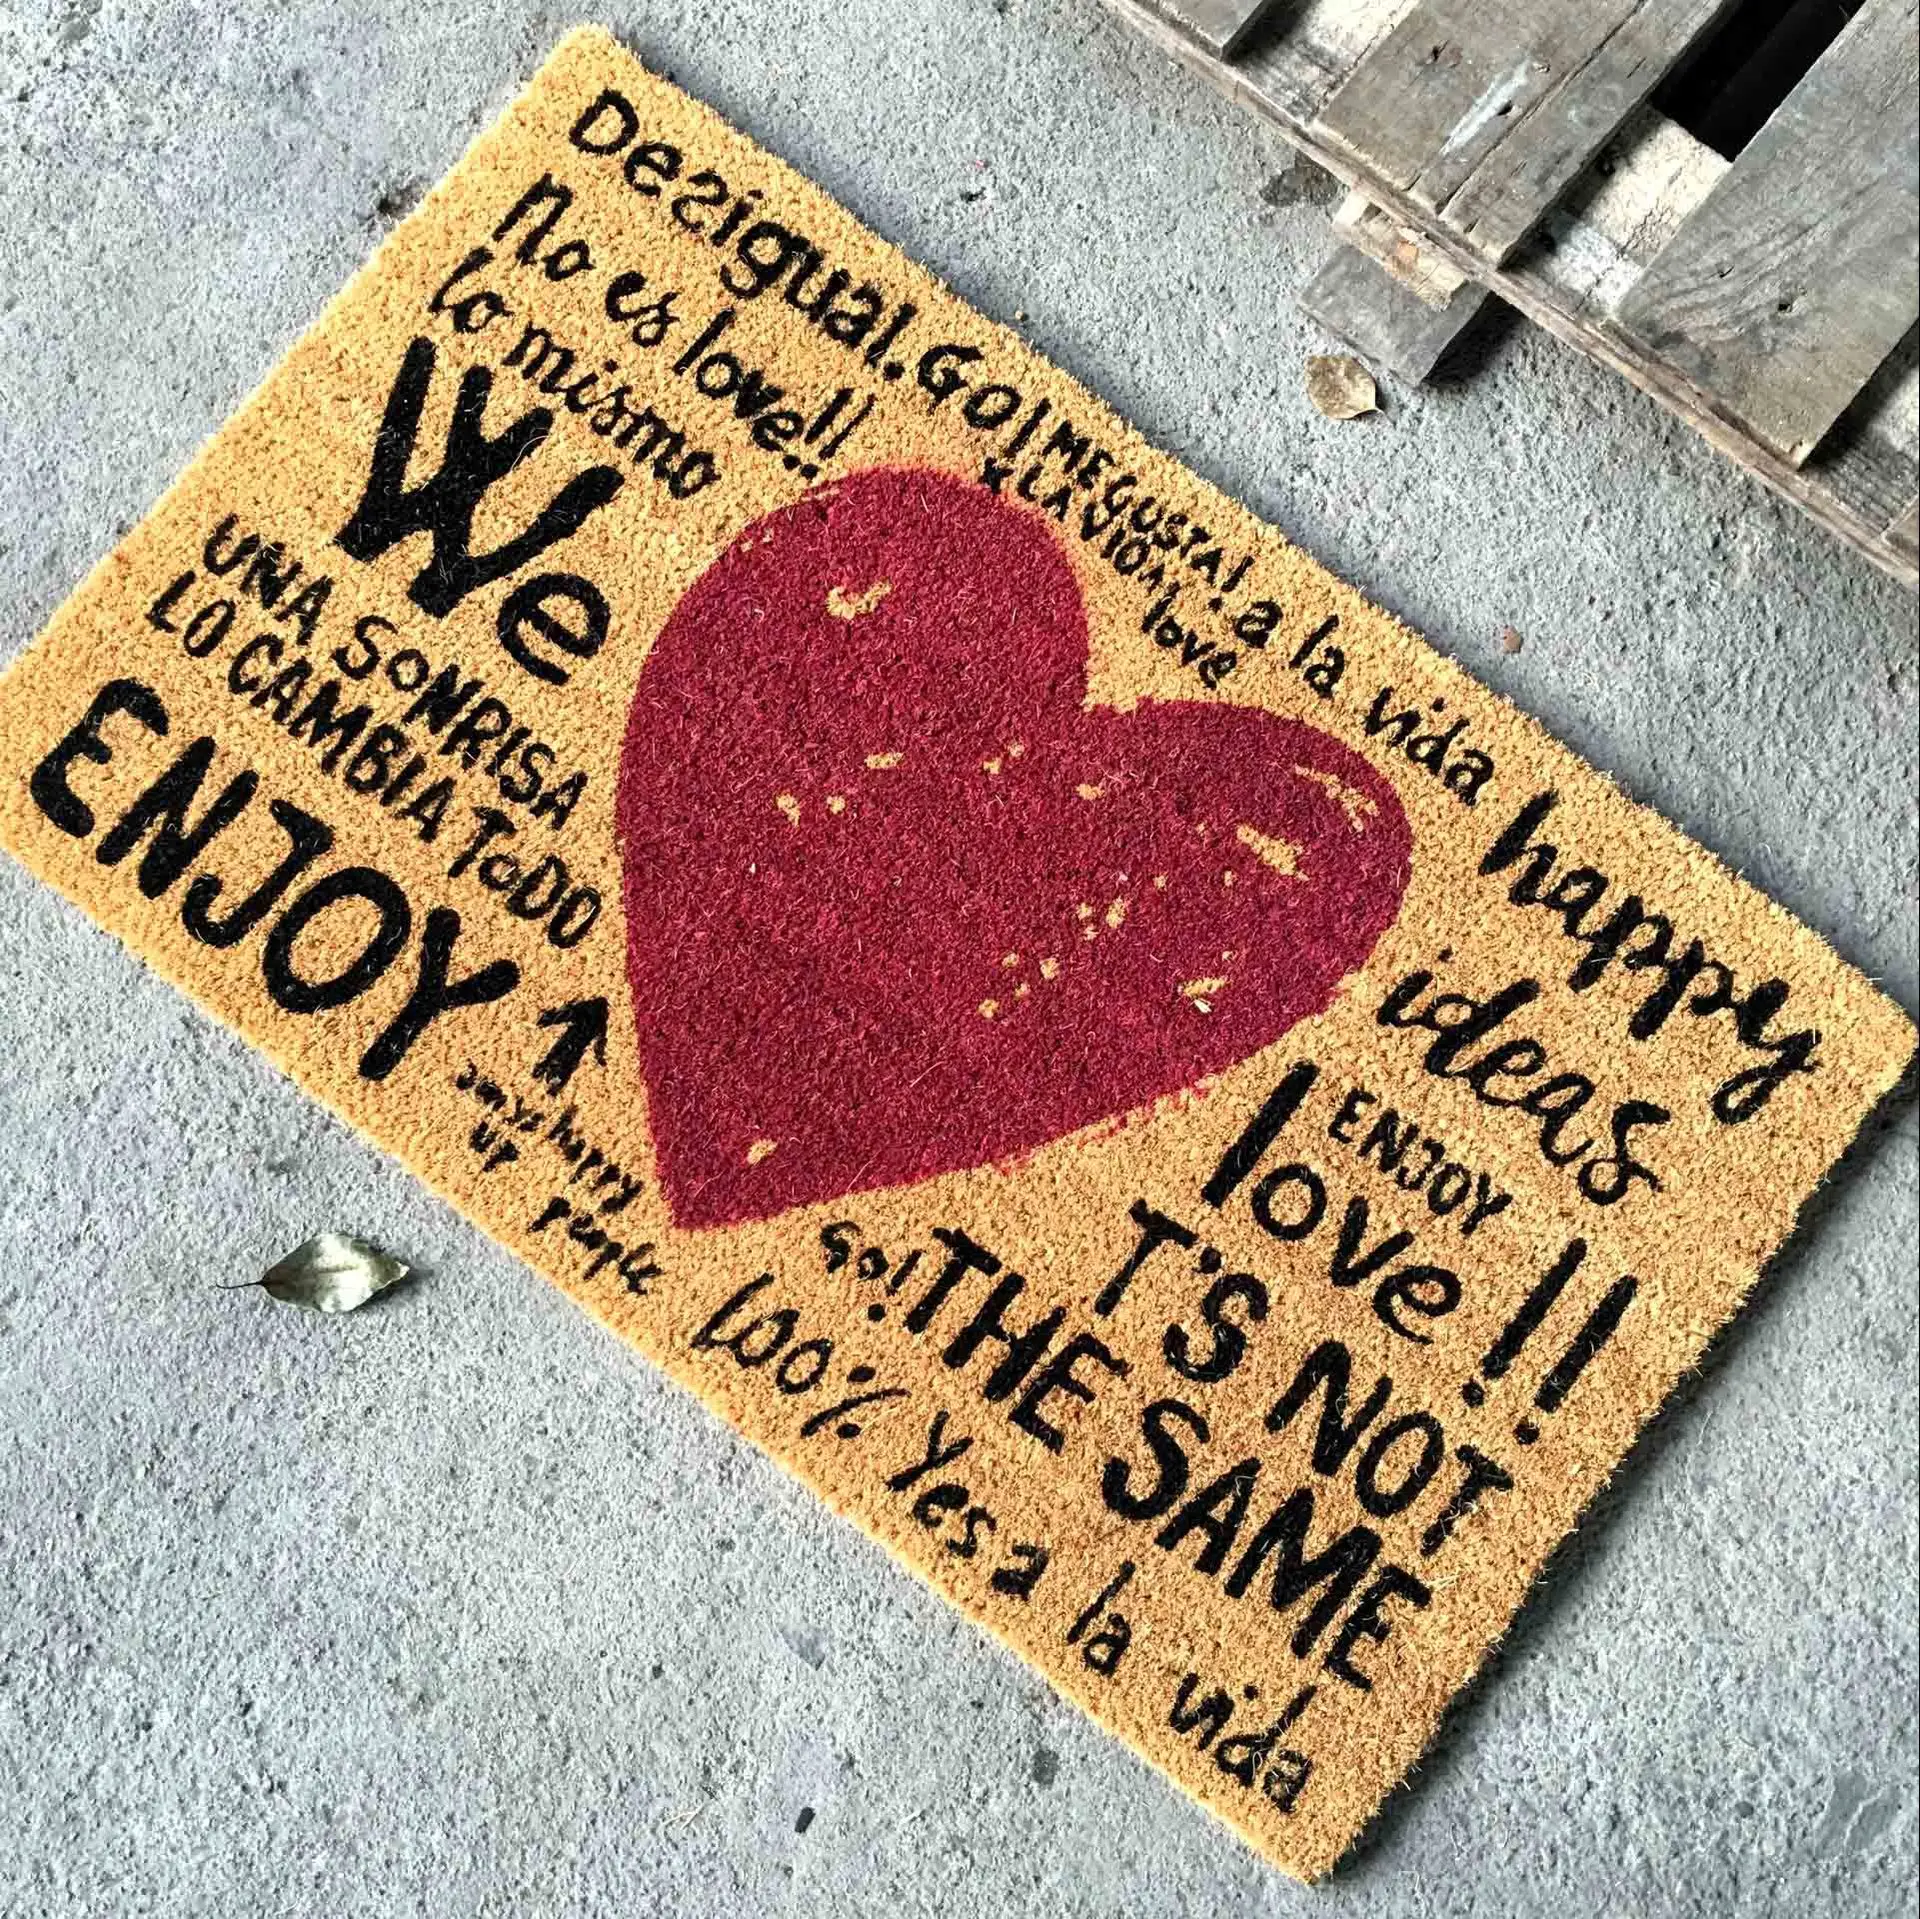 Desigual.GO! ME GUSTA! a la vida
no es love!!
lo mismo
X LA
love
We
UNA SONRISA
LO CAMBIA TODO
ENJOY
happy
ideas
ENJOY
love!!
T'S NOT
Go! THE SAME
happy
UP
people
100% Yes a la vida